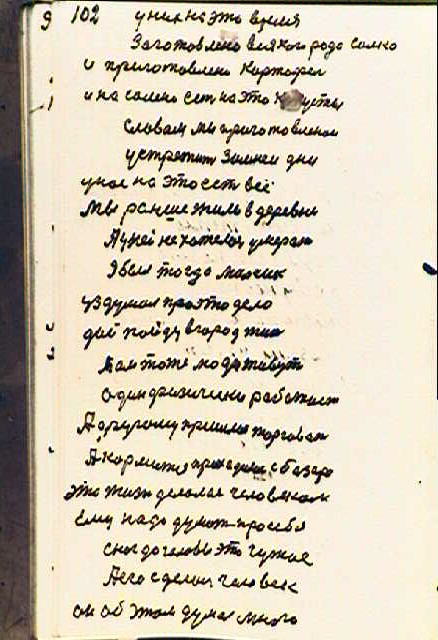 9 102 у них на это время
Заготовлено всякого рода солко
и приготовлено Картофел
и на солено сет на это Капусты
Словам мы приготовленои
устретит Зимнеи дни
у нас на это сет всё
Мы ранше жиль в деревни
А у ней не хотелос умерат
Я был тогда малчик
уздумал про это дело
дай пойду в город жит
Там тоже люди живут
один физически работает
А другому пришлос торговат
А кормится приходит с базара
это жизн делает человеком
Ему надо думат про себя
с ног до головы это чужое
А его сделал человек
он об этом думал много